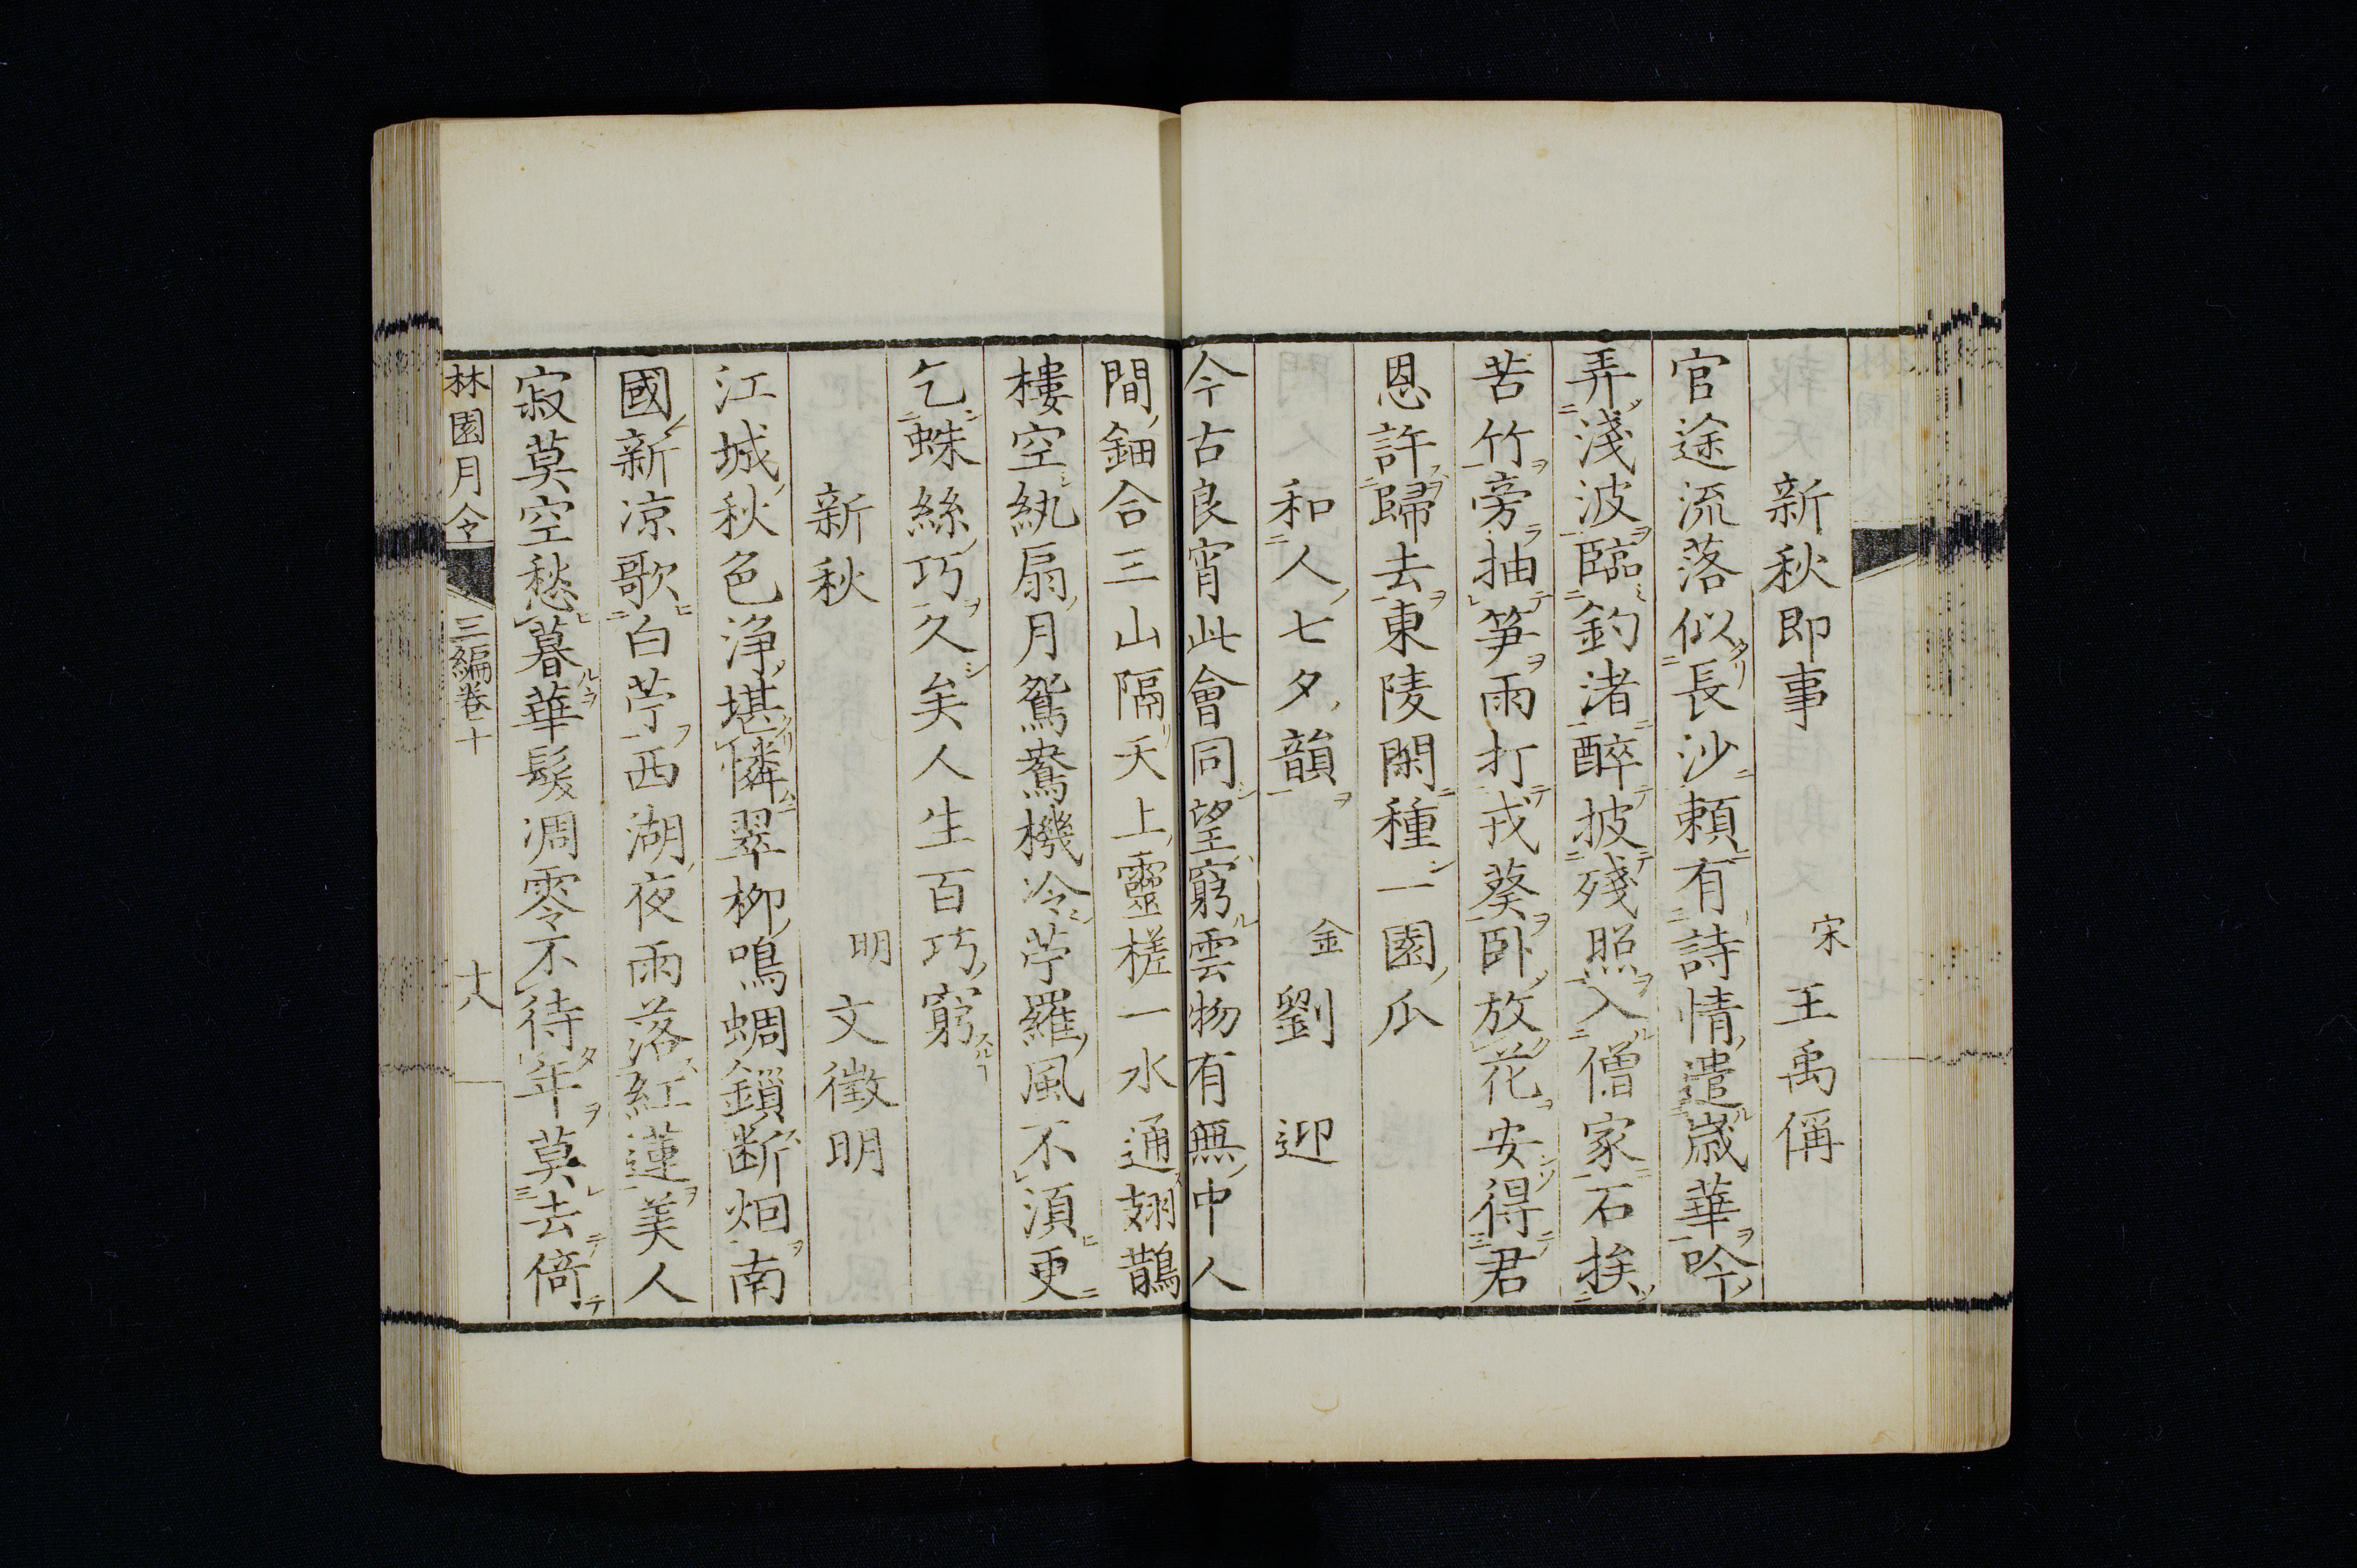 新秋即事　宋　王禹偁
官途流落似長沙頼有詩情遣歳華吟
弄淺波臨釣渚醉披殘照入僧家石挨
苦竹旁抽笋雨打戎葵卧放花安得君
恩許歸去東陵閑種一園瓜
和人七夕韻　金　劉迎
今古良宵此會同望窮雲物有無中人
間鈿合三山隔天上靈槎一水通𪃿鵲
樓空紈扇月鴛鴦機冷苧羅風不須更
乞蛛絲巧久矣人生百巧窮
新秋　明　文徵明
江城秋色浄堪憐翠柳鳴蜩鎖断烟南
國新凉歌白苧西湖夜雨落紅蓮美人
寂莫空愁暮華髮凋零不待年莫去倚
林園月令　三編卷十　十八